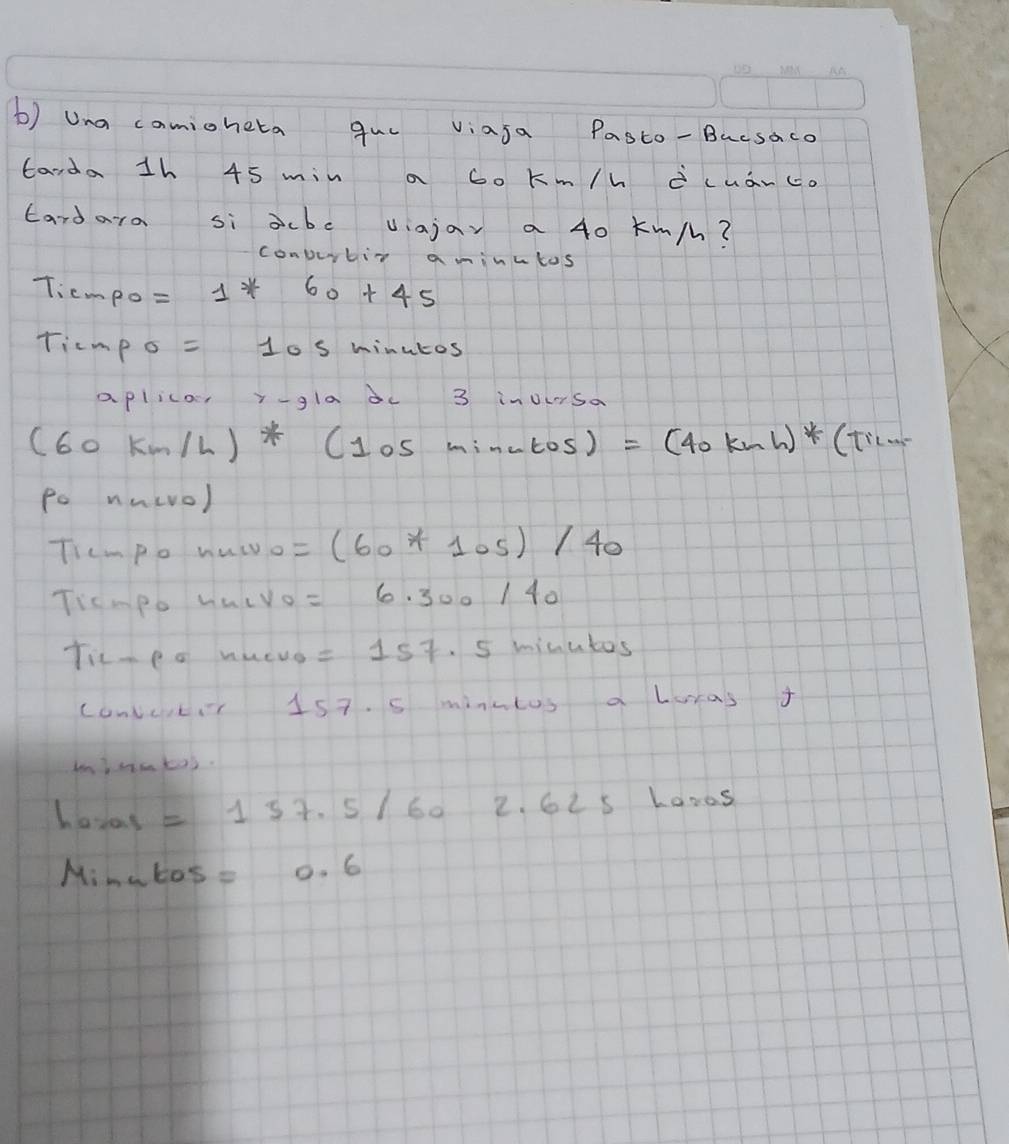 DD MM AA
b) Una camioneta que viaja Pasto - Buesaco
tarda 1h 45 min a 60 Km/h ¿cuánto
tardara si debe viajar a 40 km/h?
convertir a minutos
Tiempo = 1* 60 + 45
Tiempo = 105 minutos
aplicar regla de 3 inversa
(60 Km/h) * (105 minutos) = (40 km h) * (Tiem-
po nuevo)
Tiempo nuevo = (60 * 105) / 40
Tiempo nuevo = 6.300 / 40
Tiempo nuevo = 157.5 minutos
convertir 157.5 minutos a horas y
minutos.
horas = 157.5 / 60 2.625 horas
Minutos = 0.6